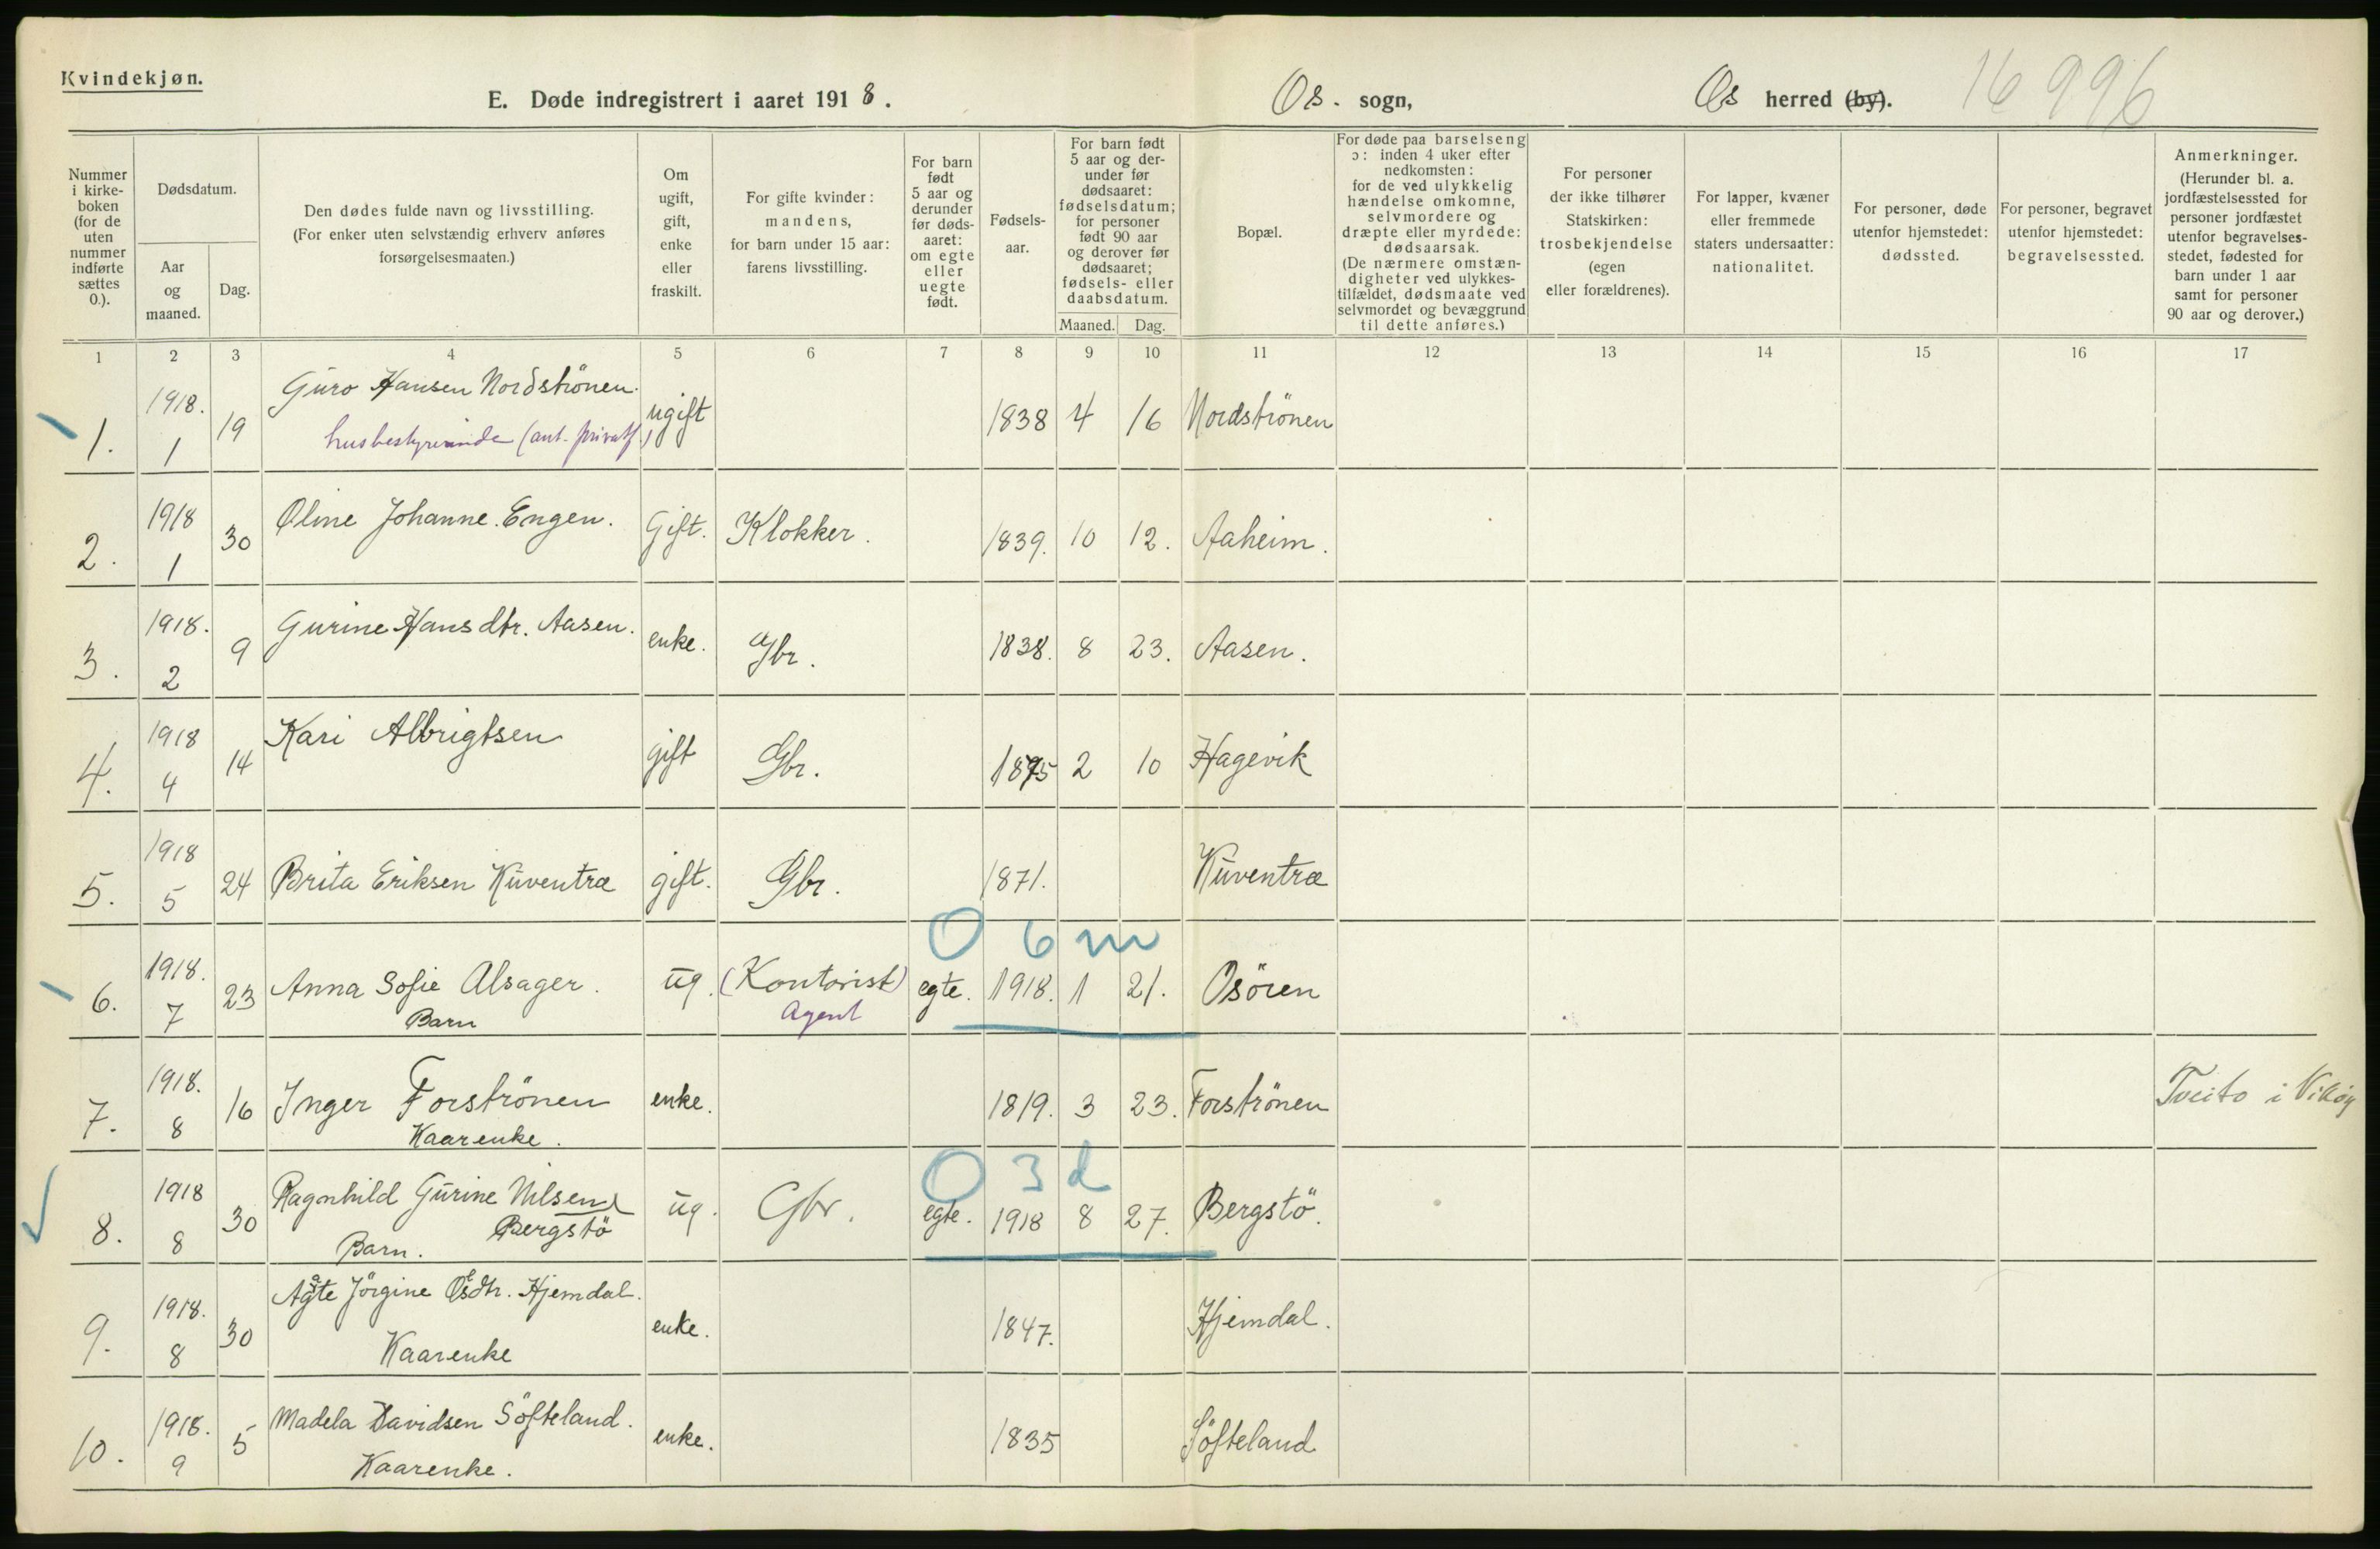 Kvindekjøn.
E. Døde indregistrert i aaret 1918.
Os. sogn,
Os herred (by).
16 996
Nummer i kirke-boken (for de uten nummer indførte sættes 0.).
Dødsdatum.
Aar og maaned.
Dag.
Den dødes fulde navn og livsstilling.
(For enker uten selvstændig erhverv anføres
forsørgelsesmaaten.)
Om ugift, gift, enke eller fraskilt.
For gifte kvinder: mandens, for barn under 15 aar: farens livsstilling.
For barn født 5 aar og derunder før døds-aaret: om egte eller uegte født.
Fødsels-aar.
For barn født 5 aar og der-under før dødsaaret: fødselsdatum; for personer født 90 aar og derover før dødsaaret; fødsels- eller daabsdatum.
Maaned. Dag.
Bopæl.
For døde paa barselseng ɔ: inden 4 uker efter nedkomsten: for de ved ulykkelig hændelse omkomne, selvmordere og dræpte eller myrdede: dødsaarsak. (De nærmere omstæn-digheter ved ulykkes-tilfældet, dødsmaate ved selvmordet og bevæggrund til dette anføres.)
For personer der ikke tilhører Statskirken: trosbekjendelse (egen eller forældrenes).
For lapper, kvæner eller fremmede staters undersaatter: nationalitet.
For personer, døde utenfor hjemstedet: dødssted.
For personer, begravet utenfor hjemstedet: begravelsessted.
Anmerkninger. (Herunder bl. a. jordfæstelsessted for personer jordfæstet utenfor begravelses-stedet, fødested for barn under 1 aar samt for personer 90 aar og derover.)
1 2 3 4 5 6 7 8 9 10 11 12 13 14 15 16 17
1. 1918. 1 19 Guro Hansen Nordströnen. ugift 1838 4 16 Nordströnen
husbestyrerinde (ant. privat)
2. 1918 1 30 Oline Johanne Engen. Gift. Klokker. 1839. 10 12. Aaheim.
3. 1918. 2 9 Gurine Hansdtr. Aasen. enke. Gbr. 1838. 8 23. Aasen.
4. 1918 4 14 Kari Albrigtsen gift Gbr. 1875 2 10 Hagevik
5. 1918 5 24 Brita Eriksen Kuventræ gift. Gbr. 1871. Kuventræ
0 6 m
6. 1918. 7 23 Anna Sofie Alsager. ug. (Kontorist) egte. 1918. 1 21. Osören
Barn Agent
7. 1918. 8 16 Inger Forströnen enke. 1819. 3 23. Forströnen Tveito i Vikøy
Kaarenke.
0 3 d
8. 1918 8 30 Ragnhild Gurine Nilsen ug. Gbr. egte. 1918 8 27. Bergstö.
Bergstö
Barn.
9. 1918. 8 30 Jörgine Hjemdal. enke. 1847. Hjemdal.
Kaarenke
10. 1918. 9 5 Madela Davidsen Söfteland. enke. 1835 Söfteland
Kaarenke.